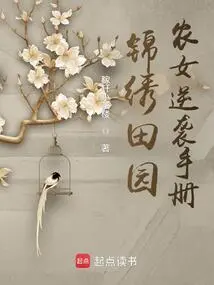 农女逆袭手册
锦绣田园
著
起点
起点读书